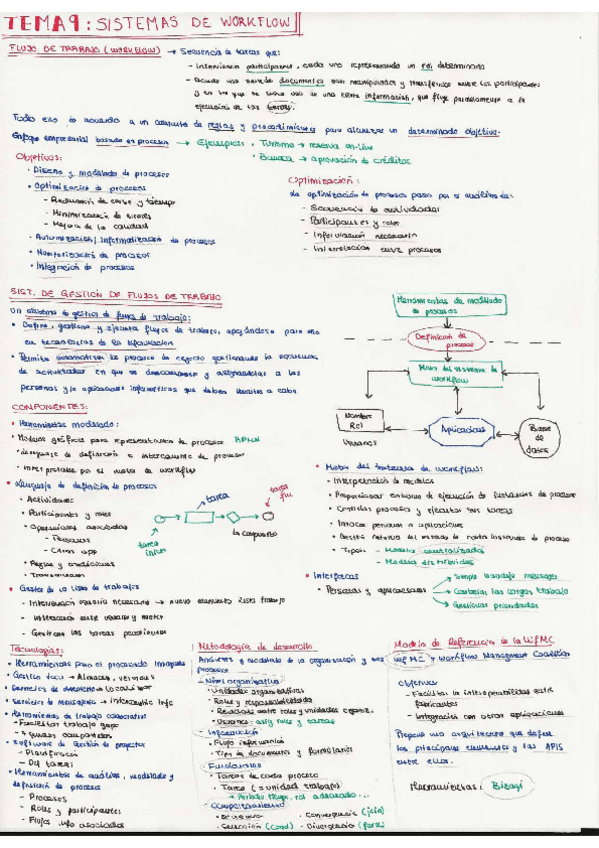 TEMA 9: SISTEMAS DE WORKFLOW
FLUJO DE TRABAJO (WORKFLOW) → Secuencia de tareas que:
- Intervienen participantes, cada uno representando un rol determinado
- donde una serie de documentos son manipulados y transferidos entre los participantes
y en los que se hace uso de una cierta información, que fluye paralelamente a la
ejecución de las tareas.
Todo ello de acuerdo a un conjunto de reglas y procedimientos para alcanzar un determinado objetivo.
Enfoque empresarial basado en procesos → Ejemplos: • Turismo → reserva on-line
• Banca → aprobación de créditos
Objetivos:
• Diseño y modelado de procesos
• Optimización de procesos
- Reducción de coste y tiempo
- Minimización de errores
- Mejora de la calidad
• Automatización / Informatización de procesos
• Monitorización de procesos
• Integración de procesos
Optimización:
La optimización de procesos pasa por el análisis de:
- Secuenciación de actividades
- Participantes y roles
- Información necesaria
- Interrelación entre procesos
SIST. DE GESTIÓN DE FLUJOS DE TRABAJO
Un sistema de gestión de flujos de trabajo:
• Define, gestiona y ejecuta flujos de trabajo, apoyándose para ello
en tecnologías de la información
• Permite automatizar los procesos de negocio gestionando la secuencia
de actividades en que se descomponen y asignándolas a las
personas y/o aplicaciones informáticas que deben llevarlas a cabo
Herramientas de modelado
de procesos
Definición de
procesos
Motor del sistema de
workflow
Nombre
Rol
Usuarios
Aplicaciones
Base
de
datos
COMPONENTES:
• Herramientas modelado:
• Modelos gráficos para representación de procesos BPMN
• Lenguaje de definición e intercambio de procesos
• Interpretados por el motor de workflow
• Lenguaje de definición de procesos
• Actividades
• Participantes y roles
• Operaciones asociadas
- Personas
- Otras app
• Reglas y condiciones
• Transiciones
tarea
inicio
tarea
tarea
fin
• Gestor de la lista de trabajos
- Intervención usuario necesaria → nuevo elemento lista trabajo
- Interacción entre usuario y motor
- Gestiona las tareas pendientes
• Motor del sistema de workflow:
- Interpretación de modelos
- Proporcionar entorno de ejecución de instancias de proceso
- Controlar procesos y ejecutar sus tareas
- Invocar personas o aplicaciones
- Tipos: - Modelos centralizados
- Modelos distribuidos
• Interfaces
• Personas y aplicaciones
→ Simple bandeja mensajes
→ Controlar las cargas trabajo
→ Gestionar prioridades
Tecnologías:
• Herramientas para el procesado imagen
• Gestión docu → Almacen, versiones
• Servicios de mensajería → intercambio info
• Herramientas de trabajo colaborativo
- Facilitar trabajo grupo
• Software de gestión de proyectos
- Planificación
- Def tareas
• Herramientas de análisis, modelado y
definición de procesos
- Procesos
- Roles y participantes
- Flujos info asociados
Metodología de desarrollo
Análisis y modelado de la organización y sus
procesos
- Nivel organizativo
• Unidades organizativas
• Roles y responsabilidades
• Relaciones entre roles y unidades organiz.
• Usuarios: asig roles y tareas
- Información
• Flujo información
• Tipo de documentos y formularios
- Funciones
• Tareas de cada proceso
• Tarea (= unidad trabajo)
- Comportamiento
• Secuencia • Convergencia (join)
• Selección (cond) • Divergencia (fork)
Modelo de Referencia de la WfMC
WfMC → Workflow Management Coalition
Objetivos
- Facilitar la interoperabilidad entre
fabricantes
- Integración con otras aplicaciones
Propone una arquitectura que define
los principales elementos y las APIS
entre ellos.
Herramientas: Bizagi